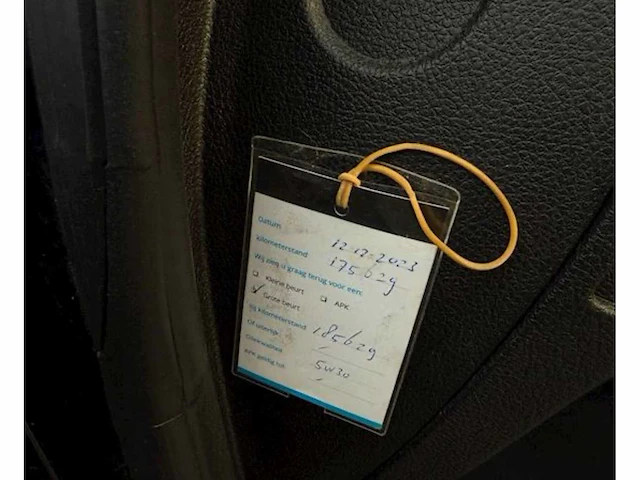 Datum 12-12-2023
kilometerstand 175629
Wij zien u graag terug voor een:
Kleine beurt
Grote beurt APK
Bij kilometerstand 185629
Of uiterlijk
Oliekwaliteit 5W30
APK geldig tot: